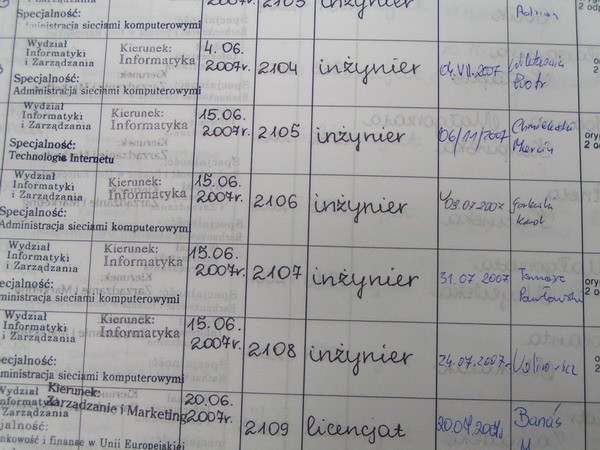 2007r. 2103 inżynier
Specjalność:
Administracja sieciami komputerowymi
Wydział Informatyki i Zarządzania Kierunek: Informatyka 4.06. 2007r. 2104 inżynier 04.VII.2007 Piotr
Specjalność:
Administracja sieciami komputerowymi
Wydział Informatyki i Zarządzania Kierunek: Informatyka 15.06. 2007r. 2105 inżynier 06/11/2007 Chmielewski Marcin
Specjalność:
Technologie Internetu
Wydział Informatyki i Zarządzania Kierunek: Informatyka 15.06. 2007r. 2106 inżynier 09.07.2007 Karol
Specjalność:
Administracja sieciami komputerowymi
Wydział Informatyki i Zarządzania Kierunek: Informatyka 15.06. 2007r. 2107 inżynier 31.07.2007 Tomasz Pawłowski
ecjalność:
ministracja sieciami komputerowymi
Wydział Informatyki i Zarządzania Kierunek: Informatyka 15.06. 2007r. 2108 inżynier 24.07.2007r.
ecjalność:
ministracja sieciami komputerowymi
Wydział Informatyki i Zarządzania Kierunek: Zarządzanie i Marketing 20.06. 2007r. 2109 licencjat Banaś
jalność:
nkowość i finanse w Unii Europejskiej